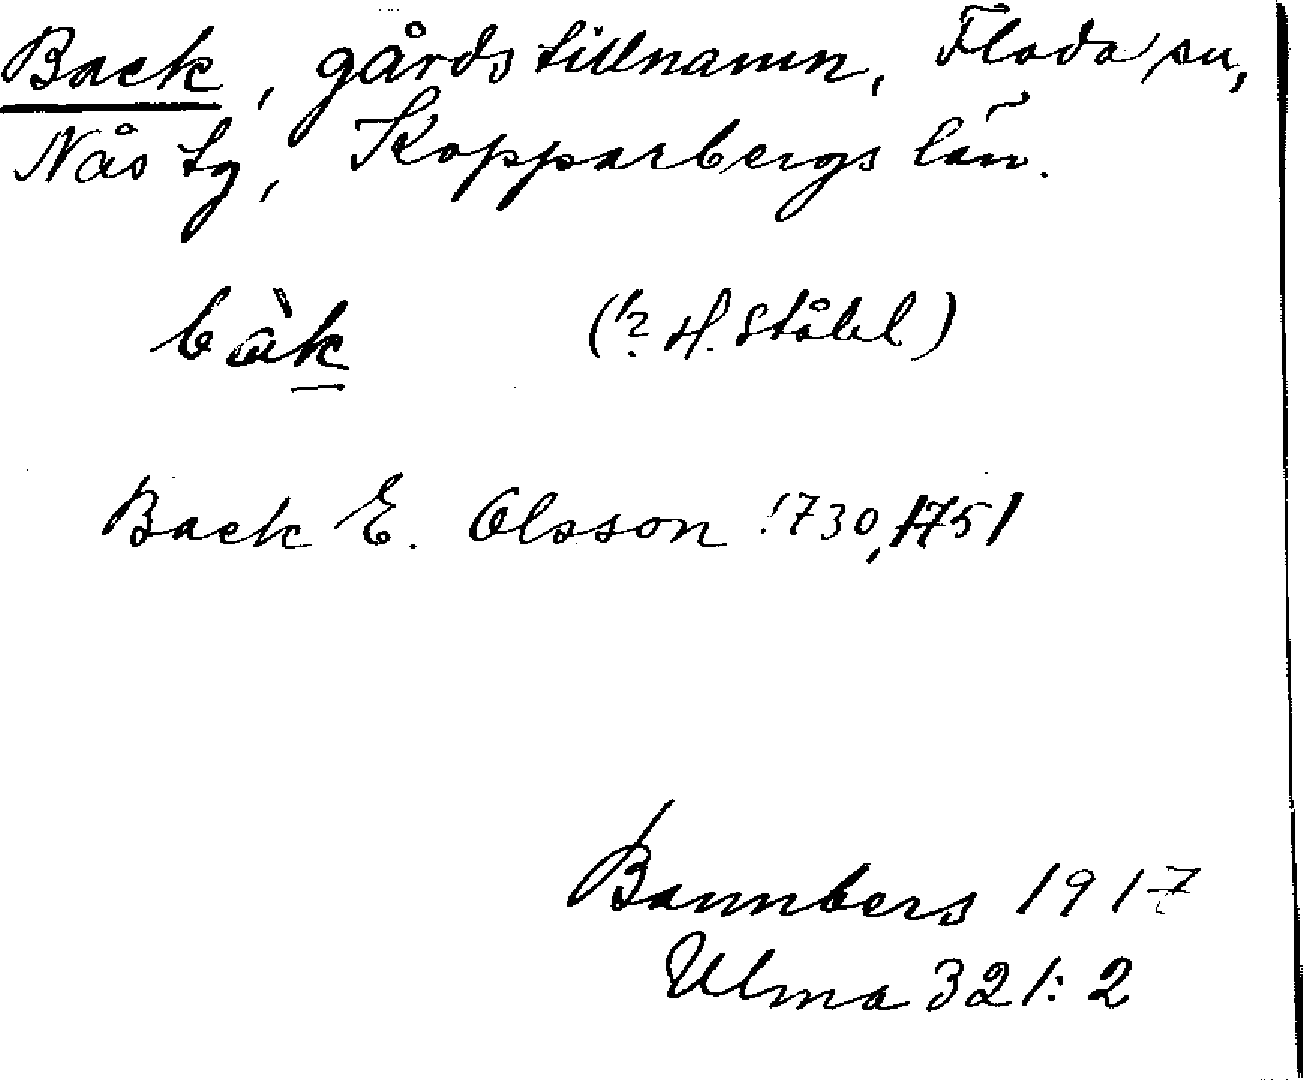 Back, gårdstillnamn, Floda sn,
Nås tg, Kopparbergs län.
bàk (? H. Ståhl)
Back E. Olsson 1730, 1751
Bannbers 1917
Ulma 321: 2